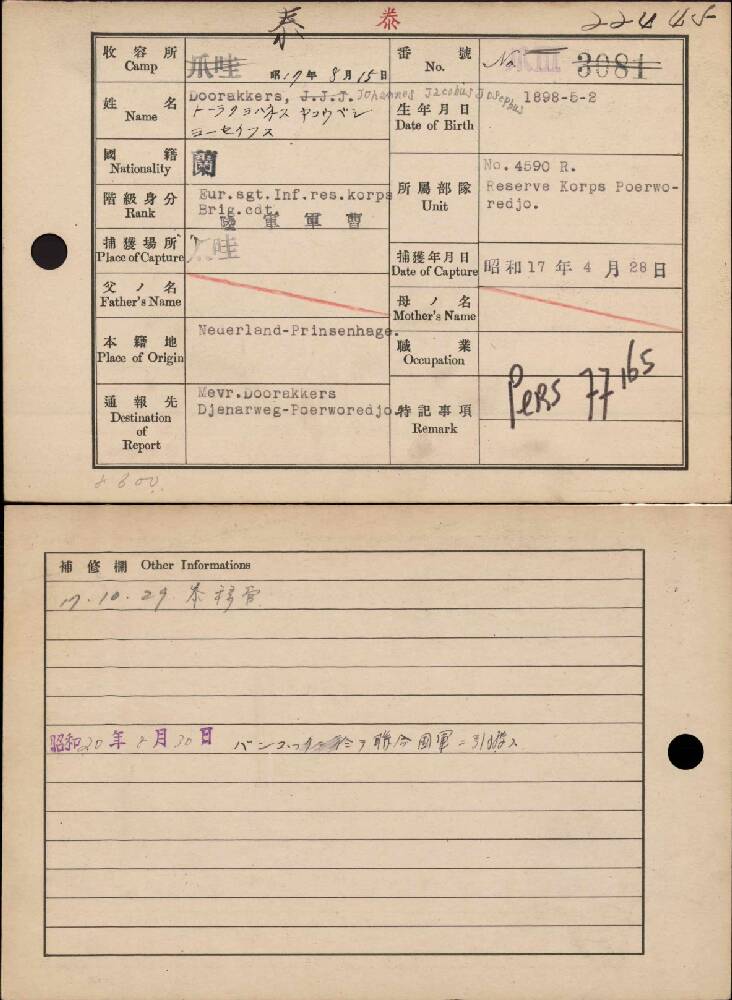 泰 泰 22445
收容所 Camp 爪哇 昭17年8月15日
番號 No. No. 3081
姓名 Name Doorakkers, J.J.J. Johannes Jacobus Josephus
ヨーセイフス
生年月日 Date of Birth 1898-5-2
國籍 Nationality 蘭
階級身分 Rank Eur.sgt.Inf.res.korps
Brig.cdt.
陸軍軍曹
所屬部隊 Unit No. 4590 R.
Reserve Korps Poerwo-
redjo.
捕獲場所 Place of Capture 爪哇
捕獲年月日 Date of Capture 昭和17年4月28日
父ノ名 Father's Name
母ノ名 Mother's Name
本籍地 Place of Origin Neuerland-Prinsenhage.
職業 Occupation
通報先 Destination of Report Mevr.Doorakkers
Djenarweg-Poerworedjo.
特記事項 Remark Pers 77165
補修欄 Other Informations
17.10.29 泰移管
昭和20年8月30日 バンコックニ於テ聯合国軍ニ引渡ス